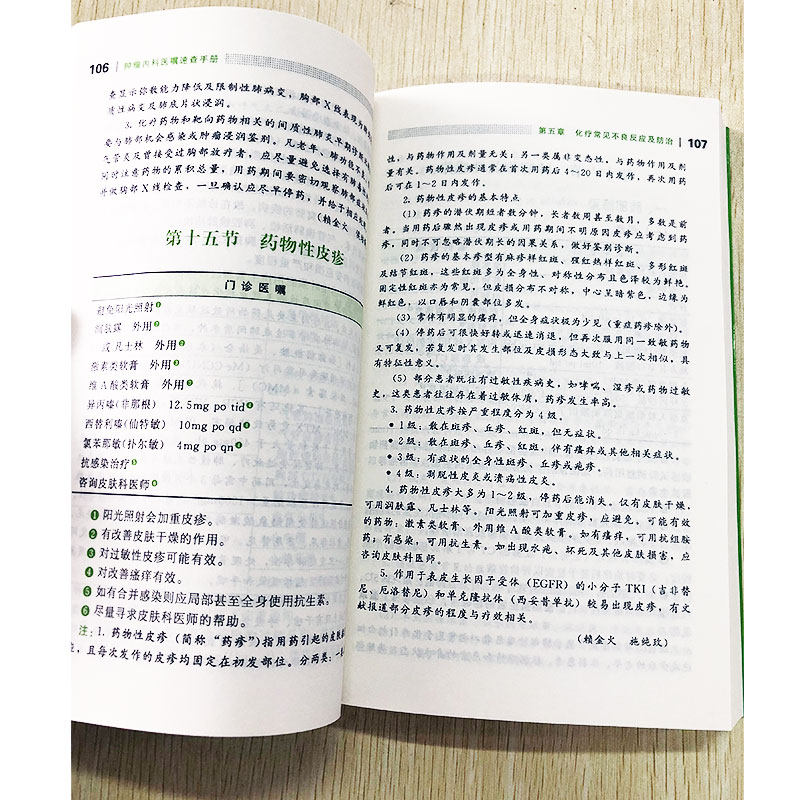 106 肿瘤内科医嘱速查手册
查显示弥散能力降低及限制性肺病变，胸部X线表现为
质性病变及肺底片状浸润。
3. 化疗药物和靶向药物相关的间质性肺炎早期诊断
要与肺部机会感染或肿瘤浸润鉴别。凡老年、肺功能不
气管炎及曾接受过胸部放疗者，应尽量避免选择有肺毒
同时对注意药物的累积总量，用药期间要密切观察肺部症
并做胸部X线检查，一旦确认应尽早停药，并给予相应
（赖金火
第十五节 药物性皮疹
门诊医嘱
避免阳光照射❶
润肤露 外用❷
或 凡士林 外用❷
激素类软膏 外用❸
维A酸类软膏 外用❸
异丙嗪(非那根) 12.5mg po tid❹
西替利嗪(仙特敏) 10mg po qd❹
氯苯那敏(扑尔敏) 4mg po qn❹
抗感染治疗❺
咨询皮肤科医师❻
❶ 阳光照射会加重皮疹。
❷ 有改善皮肤干燥的作用。
❸ 对过敏性皮疹可能有效。
❹ 对改善瘙痒有效。
❺ 如有合并感染则应局部甚至全身使用抗生素。
❻ 尽量寻求皮肤科医师的帮助。
注：1. 药物性皮疹（简称“药疹”)指用药引起的皮肤
应，且每次发作的皮疹均固定在初发部位。分两类：一
第五章 化疗常见不良反应及防治 107
性，与药物作用及剂量无关；另一类属非变态性，与药物作用及剂
量有关。药物性皮疹通常在首次用药后4～20日内发作，再次用药
后可在1～2日内发作。
2. 药物性皮疹的基本特点
（1）药疹的潜伏期短者数分钟，长者数周甚至数月，多数是前
者。当用药后骤然出现皮疹或用药期间不明原因皮疹应考虑到药
疹，同时不可忽略潜伏期长的因果关系，做好鉴别诊断。
（2）药疹的基本疹型有麻疹样红斑、猩红热样红斑、多形红斑
及结节红斑，这些红斑多为全身性、对称性分布且色泽较为鲜艳。
固定性红斑亦为常见，但皮损分布不对称，中心呈暗紫色，边缘为
鲜红色，以口唇和阴囊部位多发。
（3）常伴有明显的瘙痒，但全身症状极为少见（重症药疹除外）。
（4）停药后可很快好转或迅速消退，但再次服用同一致敏药物
又可复发，若复发时其发生部位及皮损形态大致与上一次相似，具
有特征性意义。
（5）部分患者既往有过敏性疾病史，如哮喘、湿疹或药物过敏
史，这类患者往往存在着过敏体质，药疹发生率高。
3. 药物性皮疹按严重程度分为4级。
• 1级：散在斑疹、丘疹、红斑，但无症状。
• 2级：散在斑疹、丘疹、红斑，伴有瘙痒或其他相关症状。
• 3级：有症状的全身性斑疹、丘疹或疱疹。
• 4级：剥脱性皮炎或溃疡性皮炎。
4. 药物性皮疹大多为1～2级，停药后能消失。仅有皮肤干燥，
可用润肤露、凡士林等。阳光照射可加重皮疹，应避免。可能有效
的药物：激素类软膏、外用维A酸类软膏。如有瘙痒，可用抗组胺
药；有感染，可用抗生素。如出现水疱、坏死及其他皮肤损害，应
咨询皮肤科医师。
5. 作用于表皮生长因子受体（EGFR）的小分子TKI（吉非替
尼、厄洛替尼）和单克隆抗体（西妥昔单抗）较易出现皮疹，有文
献报道部分皮疹的程度与疗效相关。
（赖金火 施纯玫）